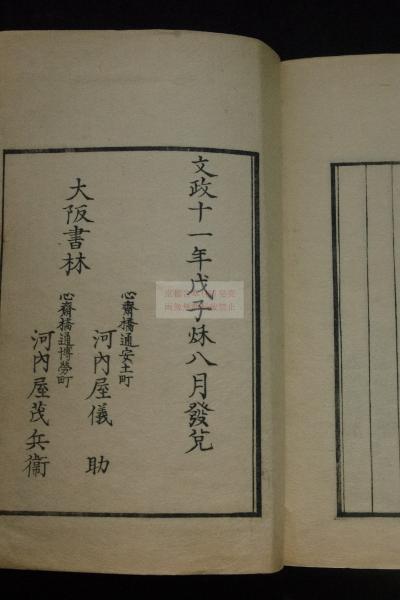 文政十一年戊子秌八月發兌
大阪書林
心齋橋通安土町
河內屋儀助
心齋橋通博勞町
河內屋茂兵衞